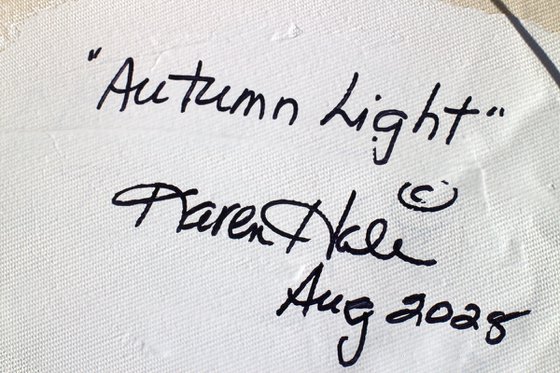 "Autumn Light"
©
Karen Hale
Aug 2025